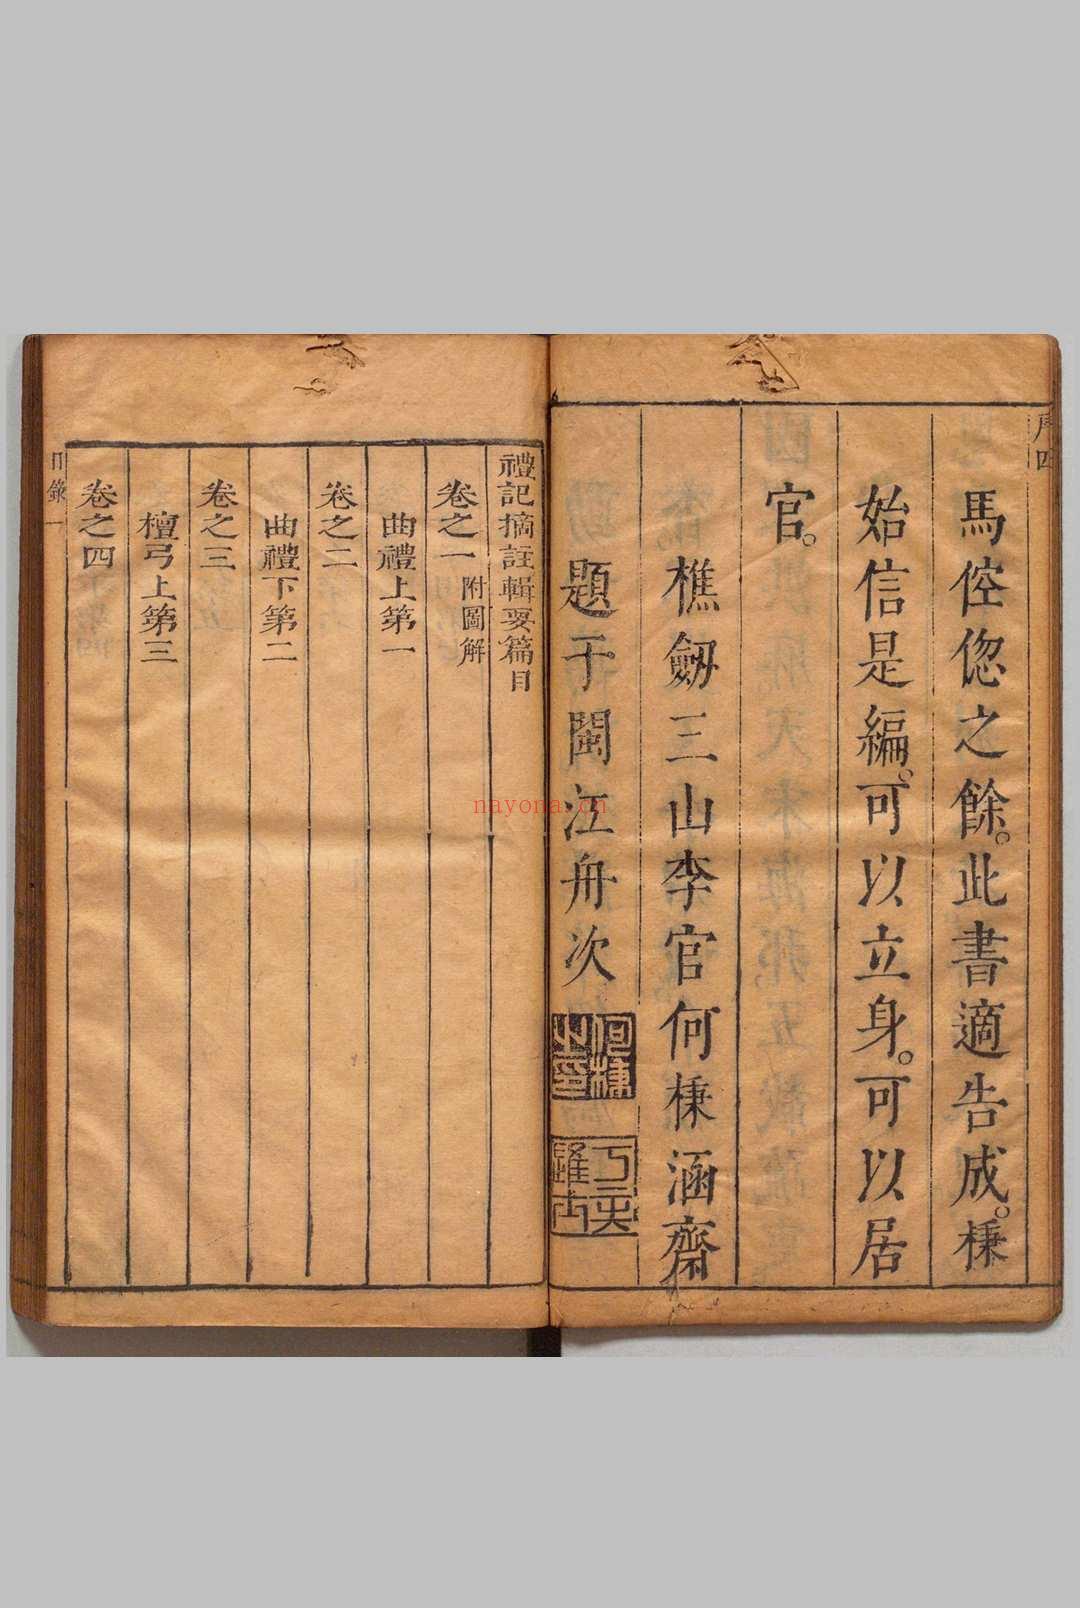 序四
馬倥傯之餘。此書適告成。㮚
始信是編。可以立身。可以居
官。
樵劒三山李官何㮚涵齋
題于閩江舟次
禮記摘註輯要篇目
卷之一 附圖解
曲禮上第一
卷之二
曲禮下第二
卷之三
檀弓上第三
卷之四
目錄 一
nayona.cn